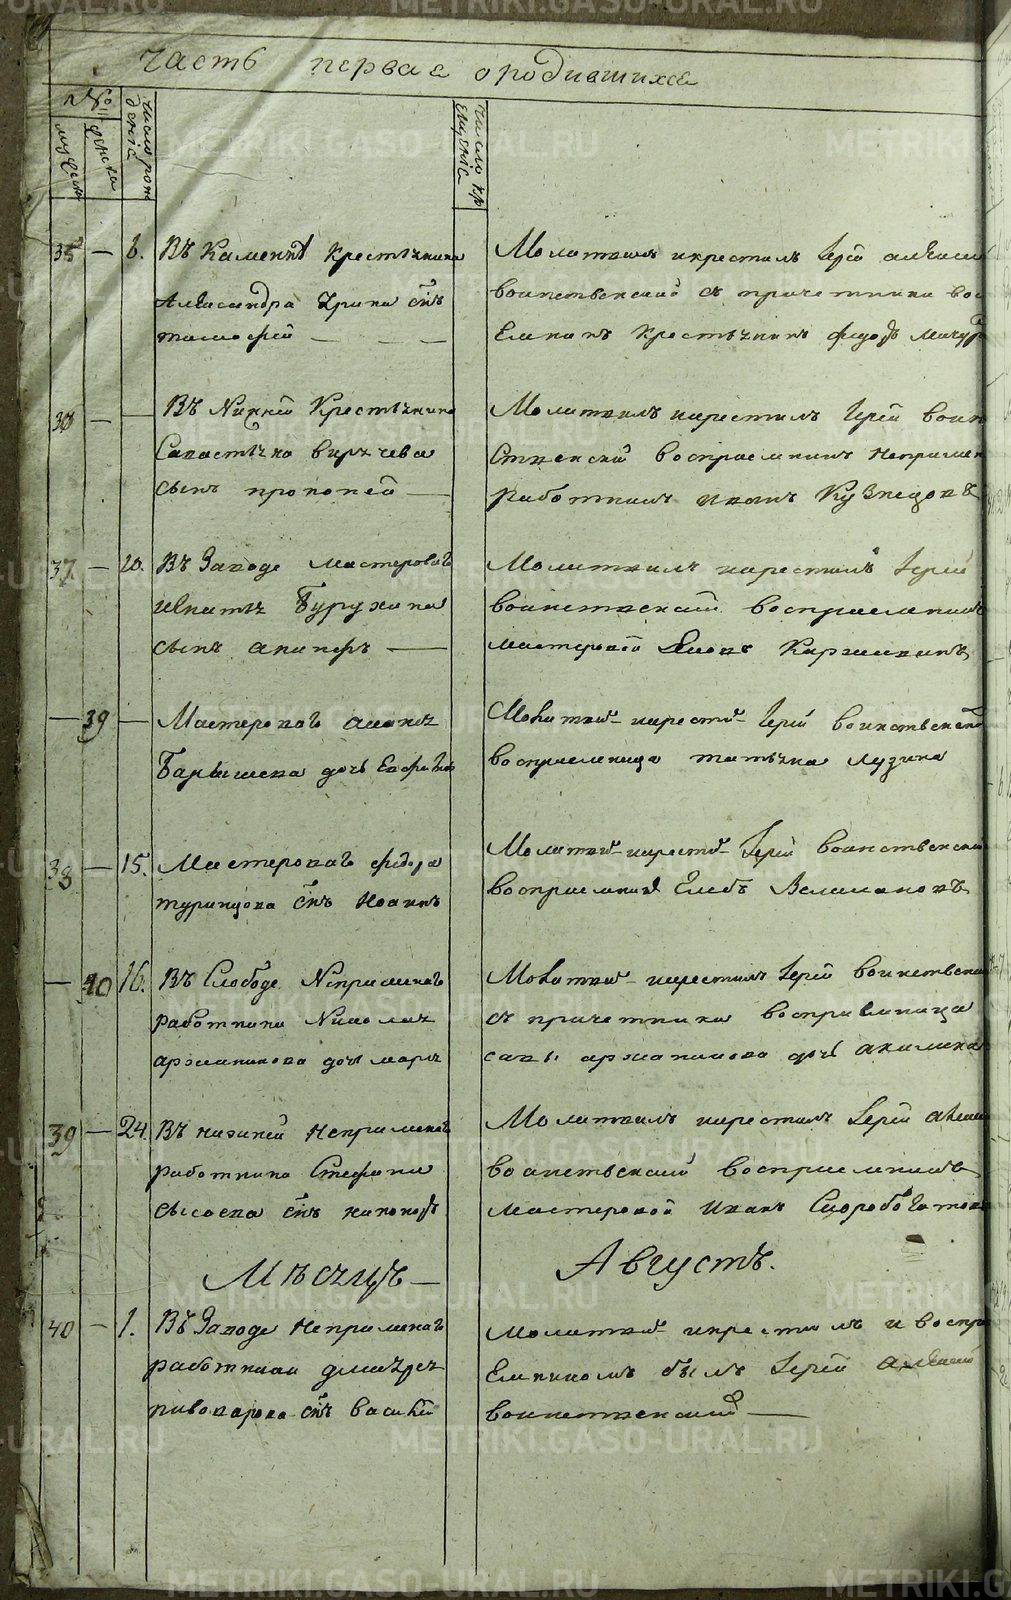 Часть первая ородившихся
№
мужеска
женска
число рож
денiя
число кр
ещенiя
35 — 8. Въ Каменкѣ крестьянина
Александра Ерина сн̃ъ
тимофей — — —
Молитвилъ икрестилъ Iерей алексий
воинственский съ причетники вос
Емникъ крестьянинъ федоръ
36 — — Въ Нижней Крестьянина
Савастьяна
сынъ прокопей —
Молитвилъ икрестилъ Iерей воин
Ственский восприемникъ Непримен
работникъ иванъ Кузнецовъ
37 — 10. Въ Заводе мастероваго
игнатья Бурухина
сынъ —
Молитвилъ икрестилъ Iерей
воинственский восприемникъ
мастеровой Яковъ
— 39 — Мастероваго
Барышева дочь
Молитви икрести Iерей воинственский
восприемница татьяна Лузина
38 — 15. Мастероваго федора
туринцова сн̃ъ Иоаннъ
Молитви икрести Iерей воинственский
восприемникъ Глебъ Велижановъ
— 40 16. Въ Слободе Непременаго
работника Николая
аржанникова дочь марья
Молитви икрестилъ Iерей воинственский
съ причетники восприемница
савы аржаникова дочь акилина
39 — 24. Въ нижней Непременаго
работника Стефана
сысоева сн̃ъ никаноръ
Молитвилъ икрестилъ Iерей алексий
воинственский восприемникъ
мастеровой Иванъ Скоробогатовъ
Мѣсяцъ — Августъ.
40 — 1. Въ Заводе Непременаго
работника дмитрея
пивоварова сн̃ъ василий
Молитви икрестилъ и воспри
Емникомъ былъ Iерей алексий
воинственский —
METRIKI.GASO-URAL.RU